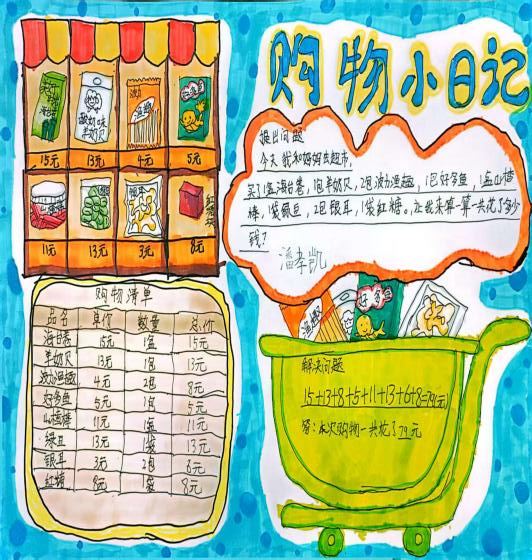 购物小日记
酸奶味
羊奶贝
15元 13元 4元 5元
11元 13元 3元 8元
提出问题
今天我和妈妈去超市,
买了1盒海苔卷,1包羊奶贝,2包波力海趣,1包好多鱼,1盒山楂
棒,1袋绿豆,2包银耳,1袋红糖。让我来算一算一共花了多少
钱?
潘孝凯
购物清单
品名 单价 数量 总价
海苔卷 15元 1盒 15元
羊奶贝 13元 1包 13元
波力海趣 4元 2包 8元
好多鱼 5元 1包 5元
山楂棒 11元 1盒 11元
绿豆 13元 1袋 13元
银耳 3元 2包 6元
红糖 8元 1袋 8元
海趣
好多鱼
解决问题
15+13+8+5+11+13+6+8=79(元)
答:本次购物一共花了79元